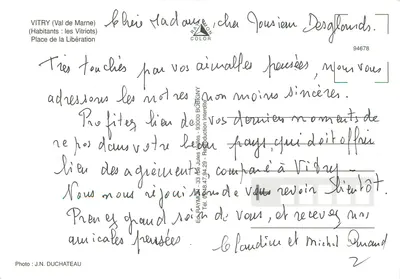 VITRY (Val de Marne)
(Habitants : les Vitriots)
Place de la Libération
COLOR
94678
Chère Madame, cher Monsieur Desglounds.
Très touchés par vos aimables pensées, nous vous
adressons les notres non moins sincères.
Profitez bien de vos derniers moments de
repos dans votre beau pays, qui doit offrir
bien des agréments comparé à Vitry
Nous nous réjouissons de vous revoir bientôt.
Prenez grand soin de vous, et recevez nos
amicales pensées.
Claudine et Michel
Photo : J.N. DUCHATEAU